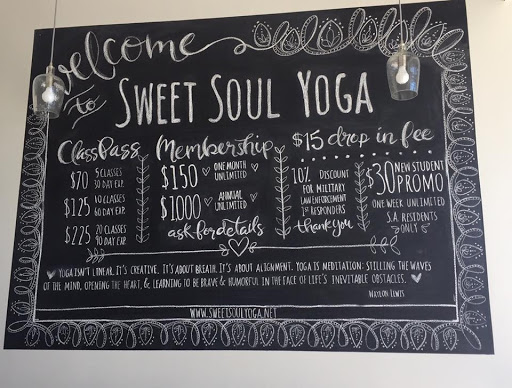 welcome
to SWEET SOUL YOGA
ClassPass
$70 5 CLASSES
30 DAY EXP.
$125 10 CLASSES
60 DAY EXP.
$225 20 CLASSES
90 DAY EXP.
Membership
$150 ONE MONTH
UNLIMITED
$1000 ANNUAL
UNLIMITED
ask for details
$15 drop in fee
10% DISCOUNT
FOR MILITARY
LAW ENFORCEMENT
1ST RESPONDERS
thank you
$30 NEW STUDENT
PROMO
ONE WEEK UNLIMITED
S.A. RESIDENTS
ONLY
YOGA ISN'T LINEAR. IT'S CREATIVE. IT'S ABOUT BREATH. IT'S ABOUT ALIGNMENT. YOGA IS MEDITATION: STILLING THE WAVES
OF THE MIND, OPENING THE HEART, & LEARNING TO BE BRAVE & HUMORFUL IN THE FACE OF LIFE'S INEVITABLE OBSTACLES.
WAYLON LEWIS
WWW.SWEETSOULYOGA.NET